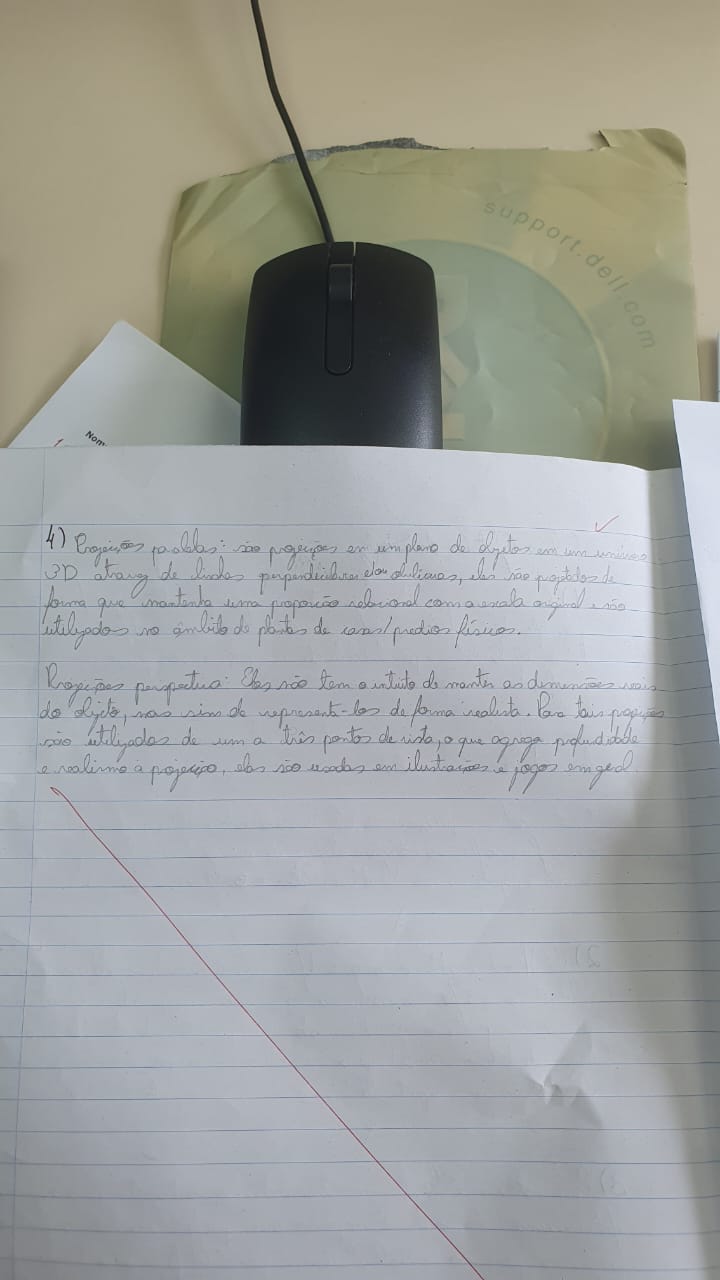 support.dell.com
Nom
4) Projeições paralelas: são projeições em um plano de objetos em um universo
3D atravez de linhas perpendiculares e/ou oblicuas, elas são projetados de
forma que mantenha uma proporção relacional com a escala original e são
utilizados no âmbito de plantas de casas/predios físicos.
Projeições perspectiva: Elas não tem o intuito de manter as dimensões reais
do objeto, mas sim de representá-los de forma realista. Para tais projeções
são utilizados de um a três pontos de vista, o que agrega profudidade
e realismo à projeição, elas são usadas em ilustrações e jogos em geral.